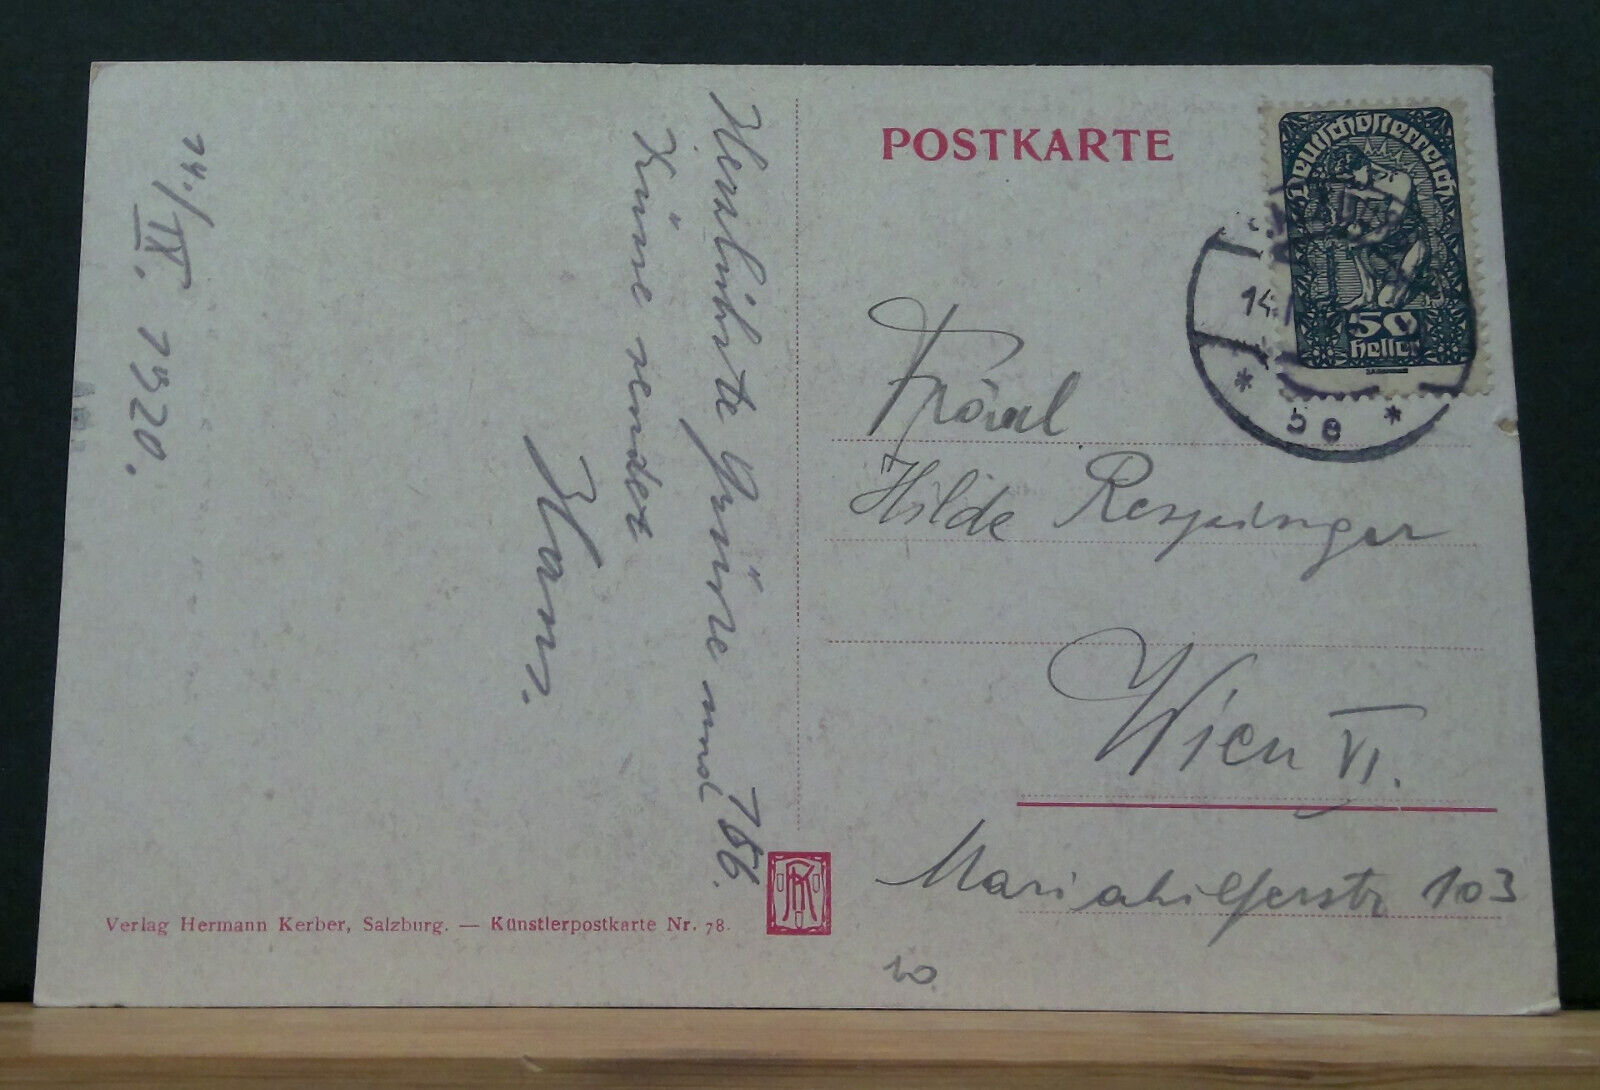 14./IX. 1920.
Herzlichste Grüße und 166.
Küsse sendet
Hans.
POSTKARTE
Deutschösterreich
50
heller
14.
* 5e *
Fräul
Hilde Respinger
Wien VI.
Mariahilferstr 103
Verlag Hermann Kerber, Salzburg. — Künstlerpostkarte Nr. 78.
10